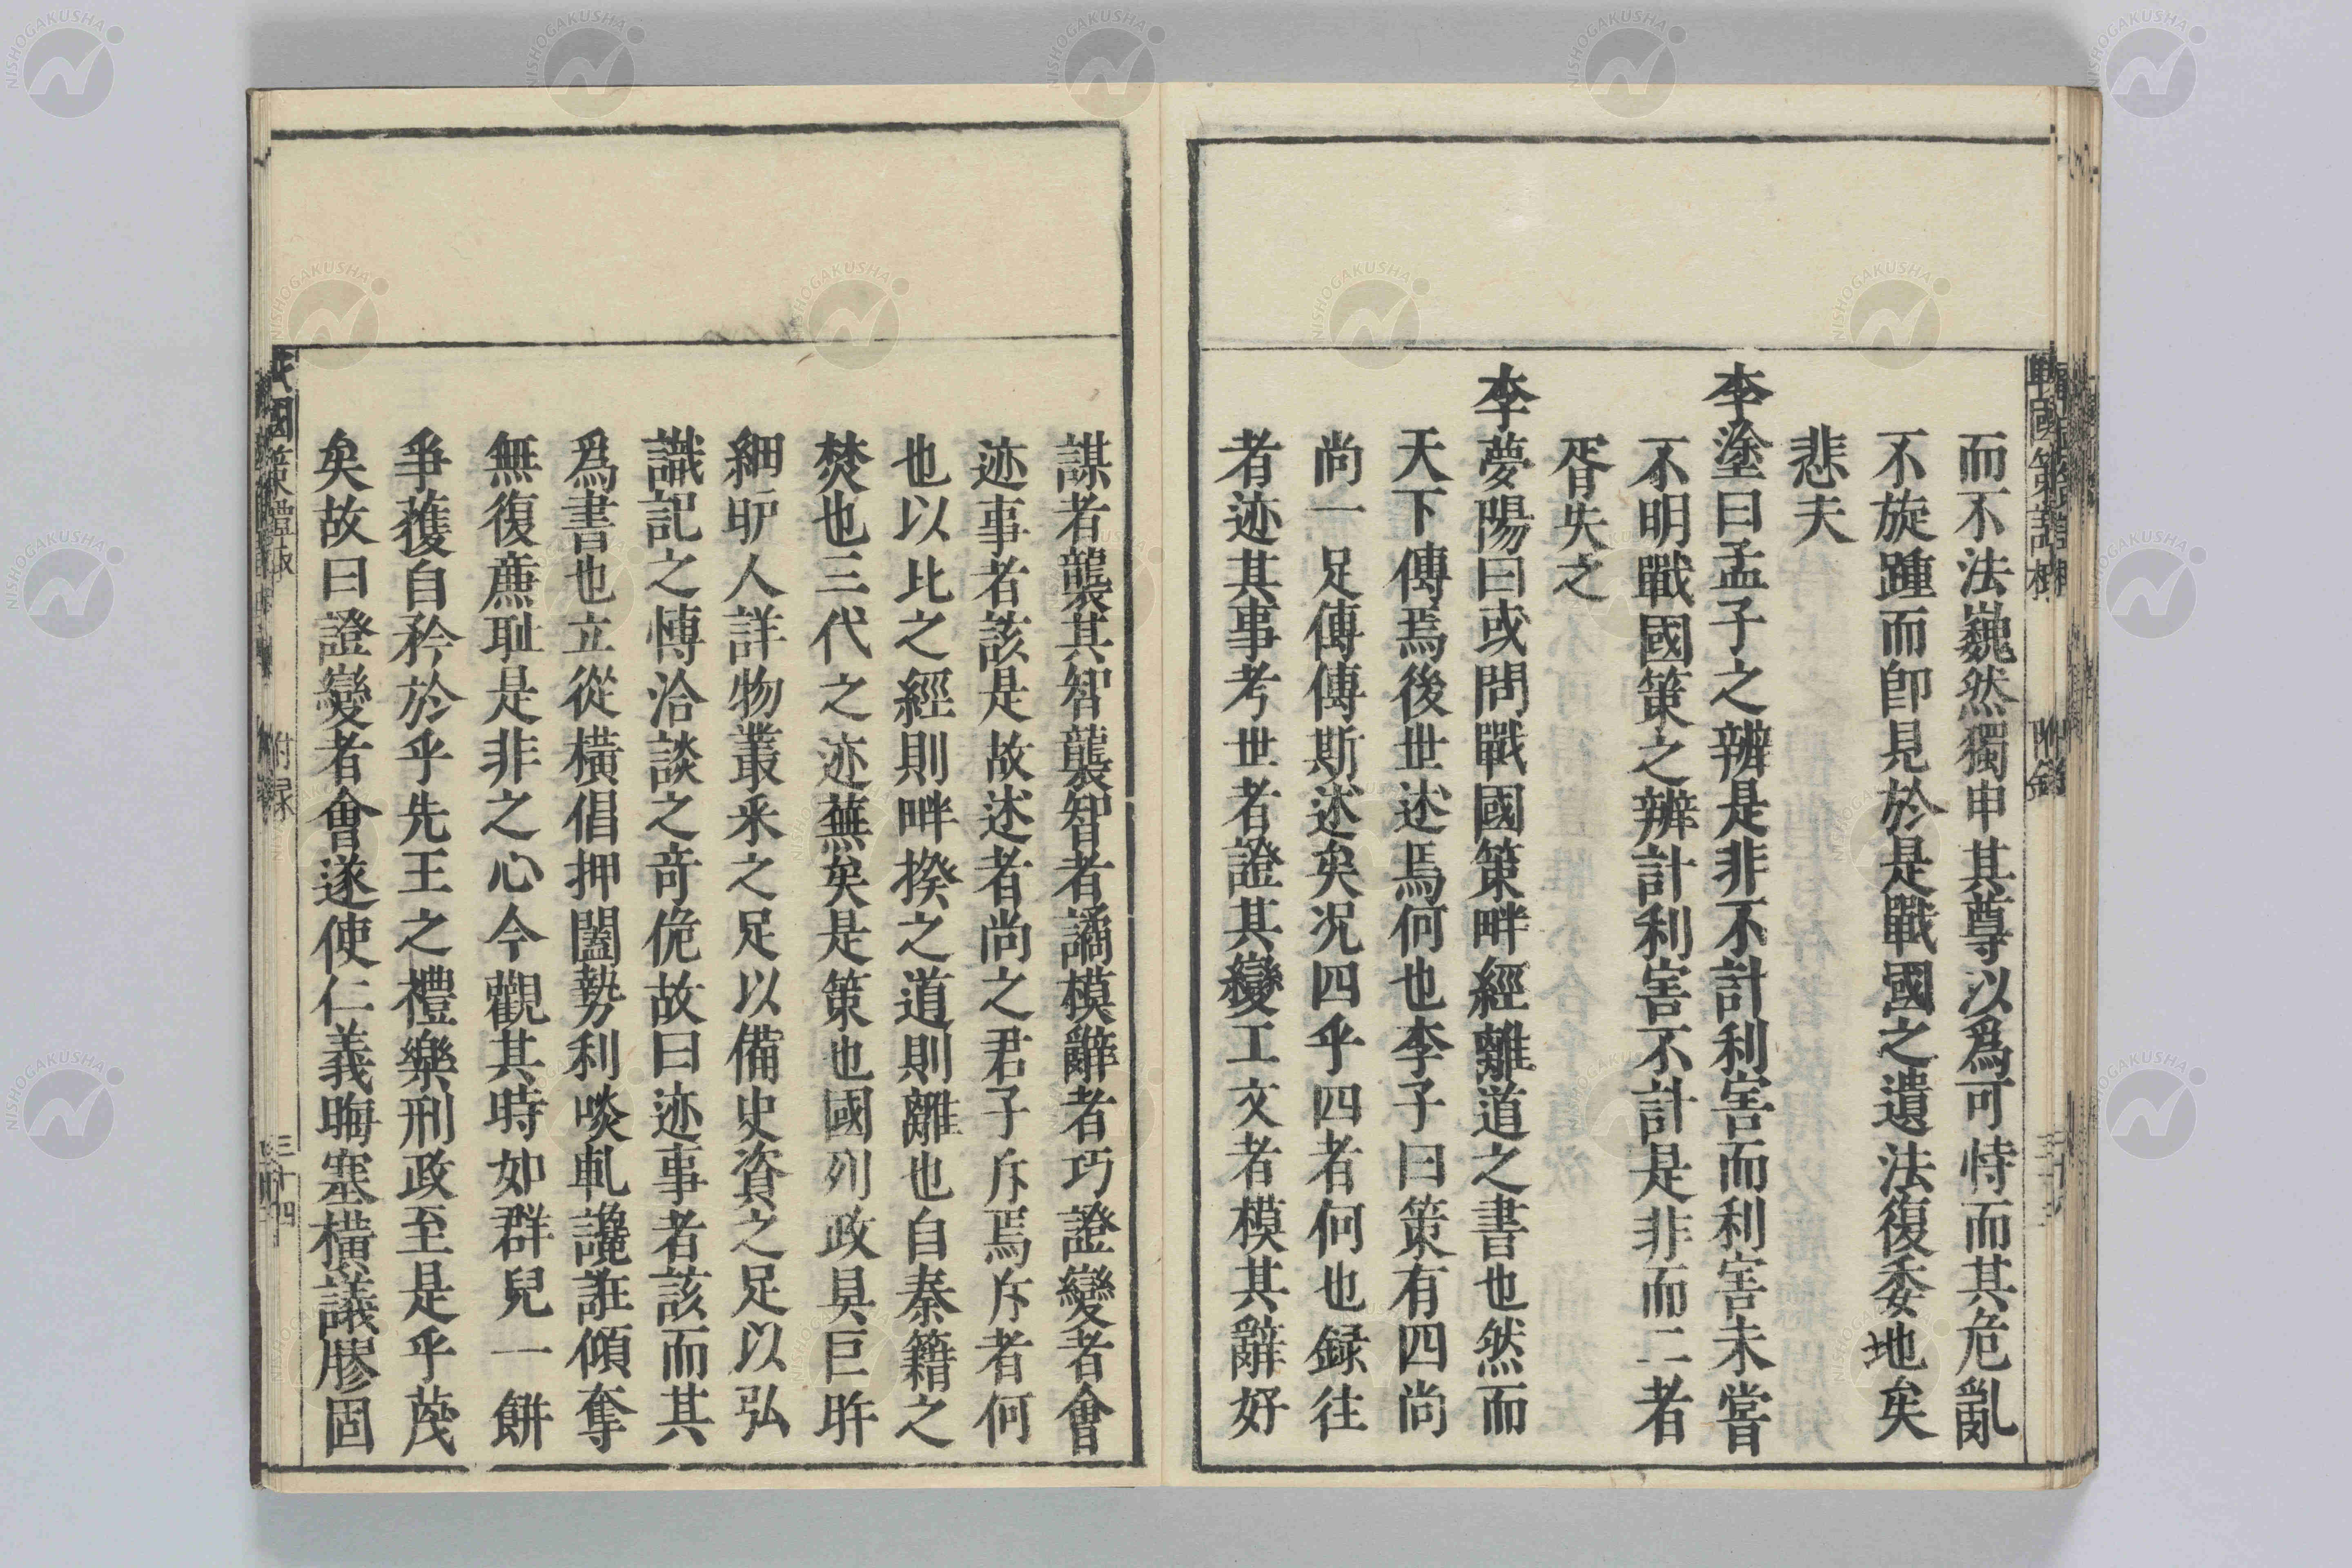 而不法巍然獨申其尊以爲可恃而其危亂
不旋踵而卽見於是戰國之遺法復委地矣
悲夫
李塗曰孟子之辨是非不計利害而利害未嘗
不明戰國策之辨計利害不計是非而二者
胥失之
李夢陽曰或問戰國策畔經離道之書也然而
天下傳焉後世述焉何也李子曰策有四尚
尚一足傳傳斯述矣况四乎四者何也録往
者迹其事考世者證其變工文者模其辭好
謀者襲其智襲智者譎模辭者巧證變者會
迹事者該是故述者尚之君子斥焉斥者何
也以比之經則畔揆之道則離也自秦籍之
焚也三代之迹蕪矣是策也國列政具巨昨
細昈人詳物叢采之足以備史資之足以弘
識記之愽洽談之奇佹故曰迹事者該而其
爲書也立從横倡押闔勢利啖軋讒誑傾奪
無復亷耻是非之心今觀其時如群兒一餅
爭蒦自矜於乎先王之禮樂刑政至是乎蔑
矣故曰證變者會遂使仁義晦塞横議膠固
附録
三十四
NISHOGAKUSHA